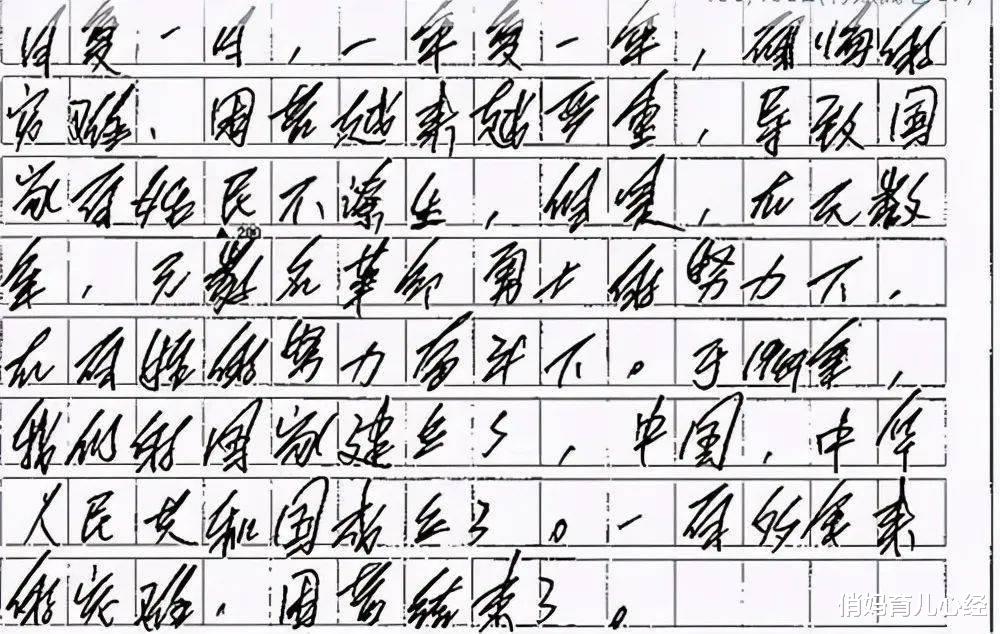 日复一日，一年复一年，
灾难、困苦越来越严重，导致国
家百姓民不潦生，但是，在无数
年，无数名革命勇士的努力下，
在百姓的努力奋斗下。于1949年，
我们的国家建立了，中国，中华
人民共和国成立了。一百多年来
的灾难、困苦结束了。
200
俏妈育儿心经